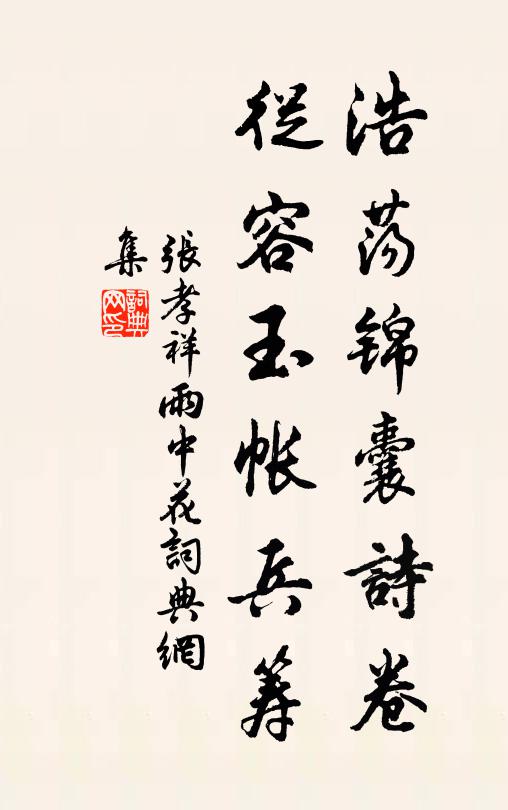 浩荡錦囊詩卷
從容玉帐兵筹
張孝祥雨中花詞典網
集
詞典
网印